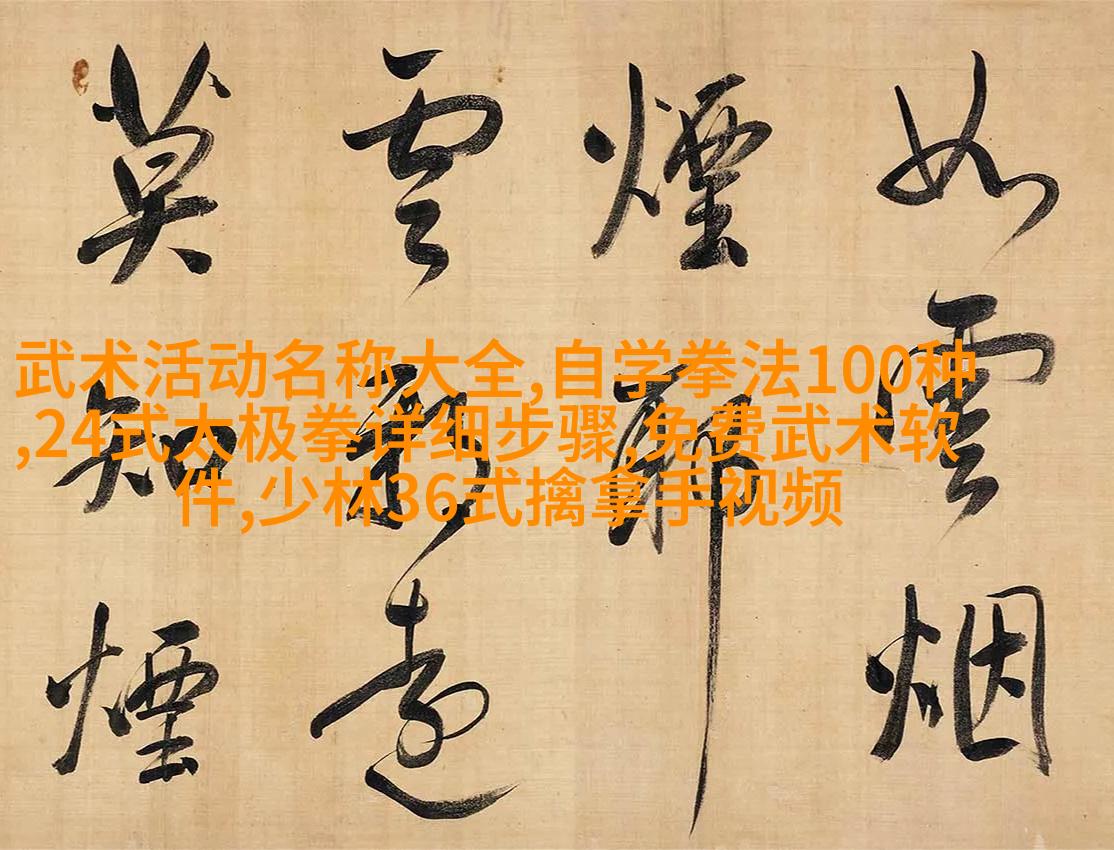 武术活动名称大全,自学拳法100种
,24式太极拳详细步骤,免费武术软
件,少林36式擒拿手视频
如雲烟
煙耶
雲遠
莫知煙